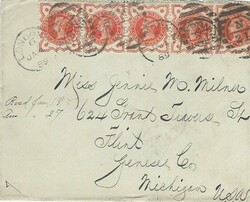 LONDON
89
89
Miss Jennie M. Milner
624 Grant Travers St
Flint
Genesee Co
Michigan
USA
Read Jan 18
27